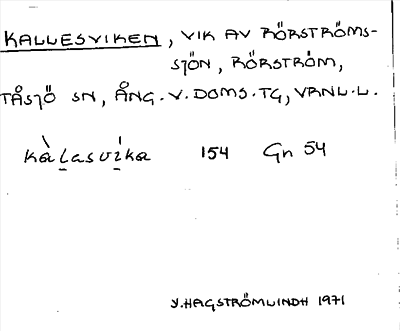 KALLESVIKEN, VIK AV RÖRSTRÖMS-
SJÖN, RÖRSTRÖM,
TÅSJÖ SN, ÅNG.V.DOMS.TG, VRNL.L.
kàl̲asví̲ka 154 Gn 54
Y.HAGSTRÖMLINDH 1971